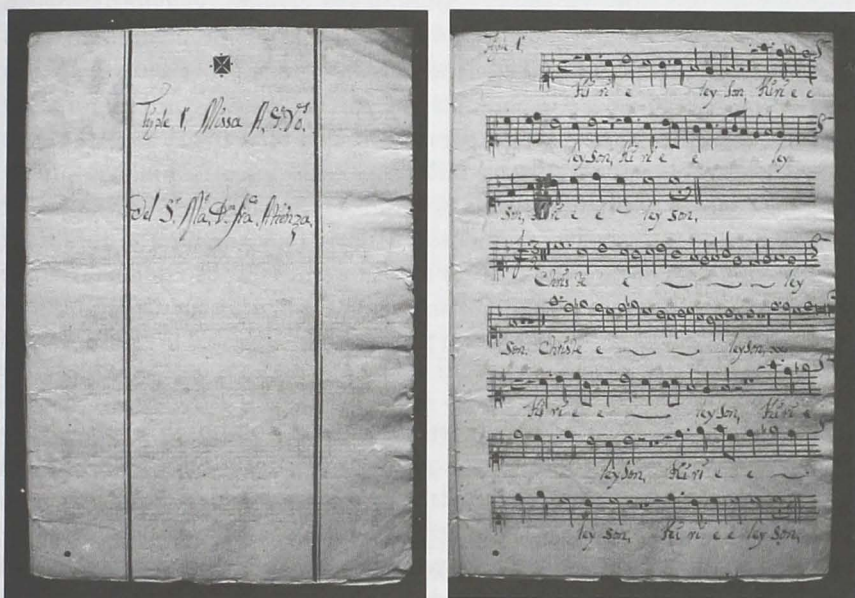 Tiple 1º. Missa A. 5. Vós.
del Sr. Mº. Dn. Franº. Atienza.
Tiple 1º
Ki ri e ley son, Ki ri e e
ley son, Ki ri e e ley
son, Ki ri e e ley son,
Chris te e ley
son. Christe e ley son,
Ki ri e e ley son, Ki ri e
ley son, Ki ri e e
ley son, Ki ri e e ley son,